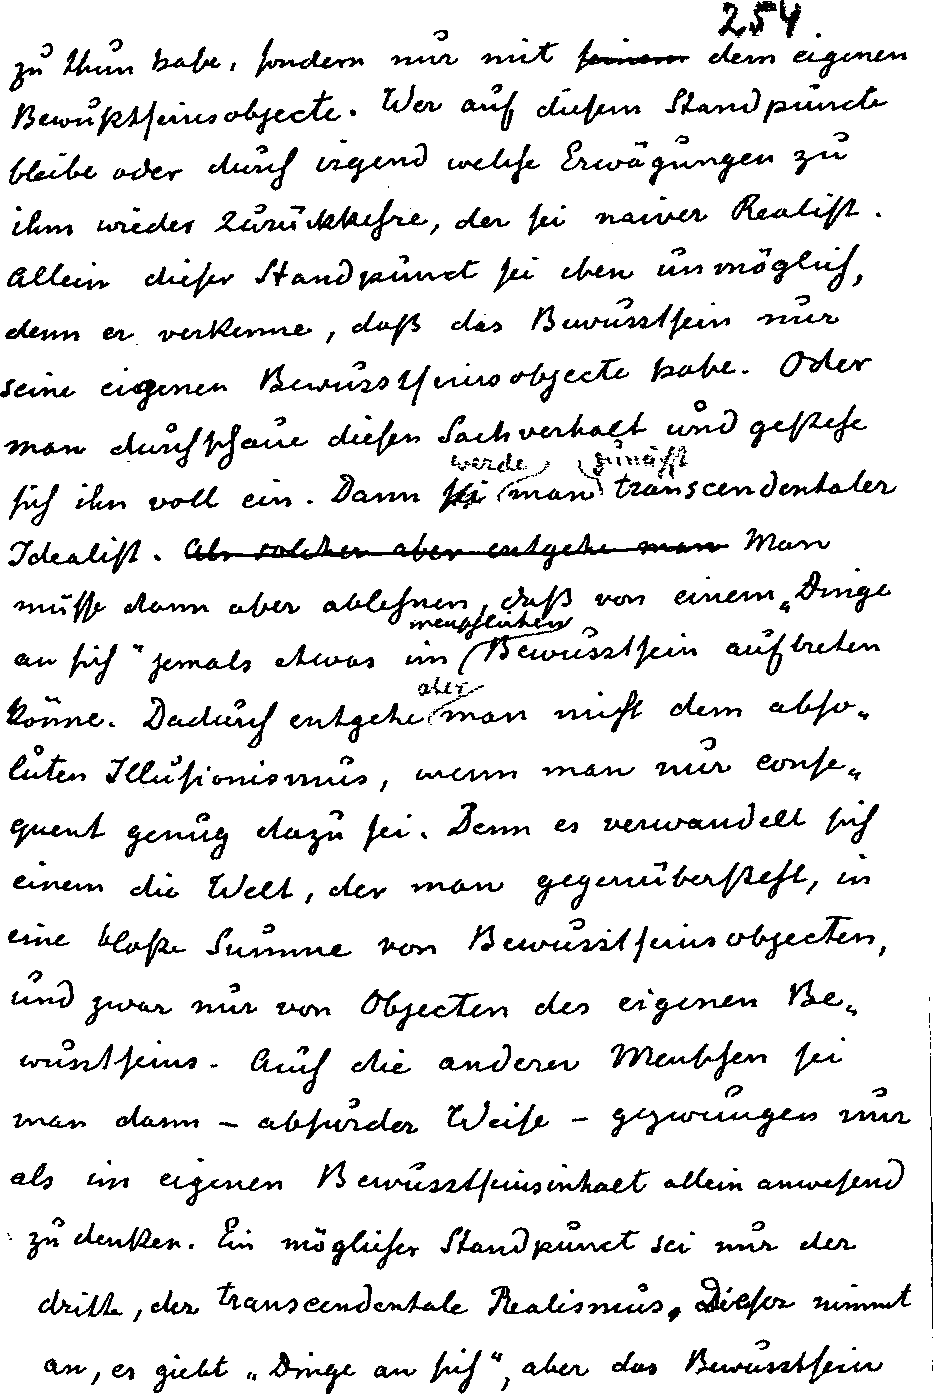 254.
zu thun habe, sondern nur mit seinem dem eigenen
Bewußtseinsobjecte. Wer auf diesem Standpuncte
bleibe oder durch irgend welche Erwägungen zu
ihm wieder zurückkehre, der sei naiver Realist.
Allein dieser Standpunct sei eben unmöglich,
denn er verkenne, daß das Bewusstsein nur
seine eigenen Bewusstseinsobjecte habe. Oder
man durchschaue diesen Sachverhalt und gestehe
werde zunächst
sich ihn voll ein. Dann sei man transcendentaler
Idealist. Als solcher aber entgehe man Man
müsse dann aber ablehnen, daß von einem „Dinge
menschlichen
an sich" jemals etwas im Bewusstsein auftreten
aber
könne. Dadurch entgehe man nicht dem abso„
luten Illusionismus, wenn man nur conse„
quent genug dazu sei. Denn es verwandelt sich
einem die Welt, der man gegenübersteht, in
eine bloße Summe von Bewusstseinsobjecten,
und zwar nur von Objecten des eigenen Be„
wusstseins. Auch die anderen Menschen sei
man dann – absurder Weise – gezwungen nur
als im eigenen Bewusstseinsinhalt allein anwesend
zu denken. Ein möglicher Standpunct sei nur der
dritte, der transcendentale Realismus. Dieser nimmt
an, es giebt „Dinge an sich", aber das Bewusstsein